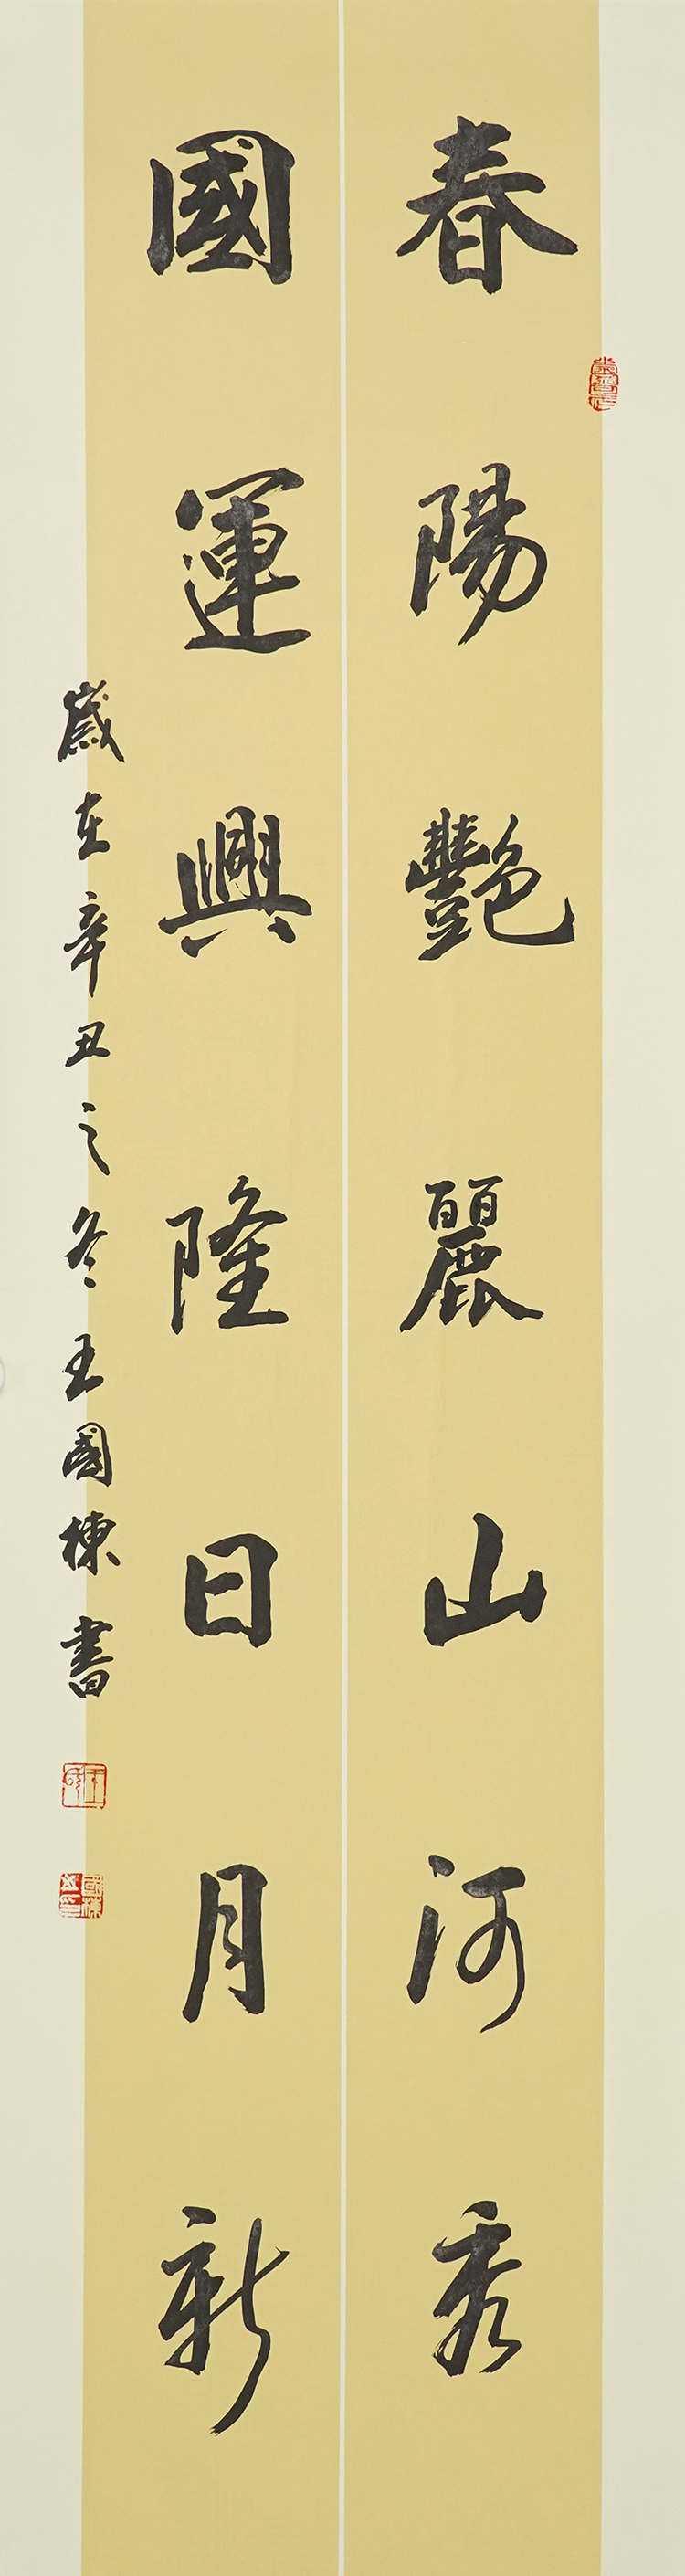 春陽豔麗山河秀
國運興隆日月新
歲在辛丑之冬王國棟書